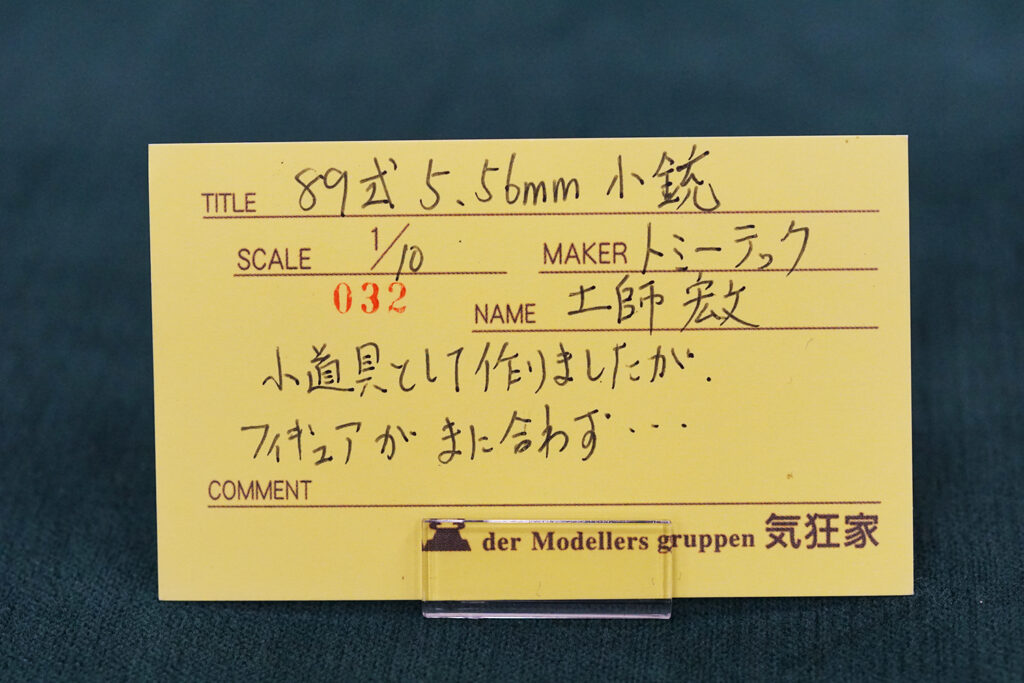 TITLE 89式 5.56mm 小銃
SCALE 1/10 MAKER トミーテック
032
NAME 土師 宏文
小道具として作りましたが.
フィギュアが まに合わず・・・
COMMENT
der Modellers gruppen 気狂家